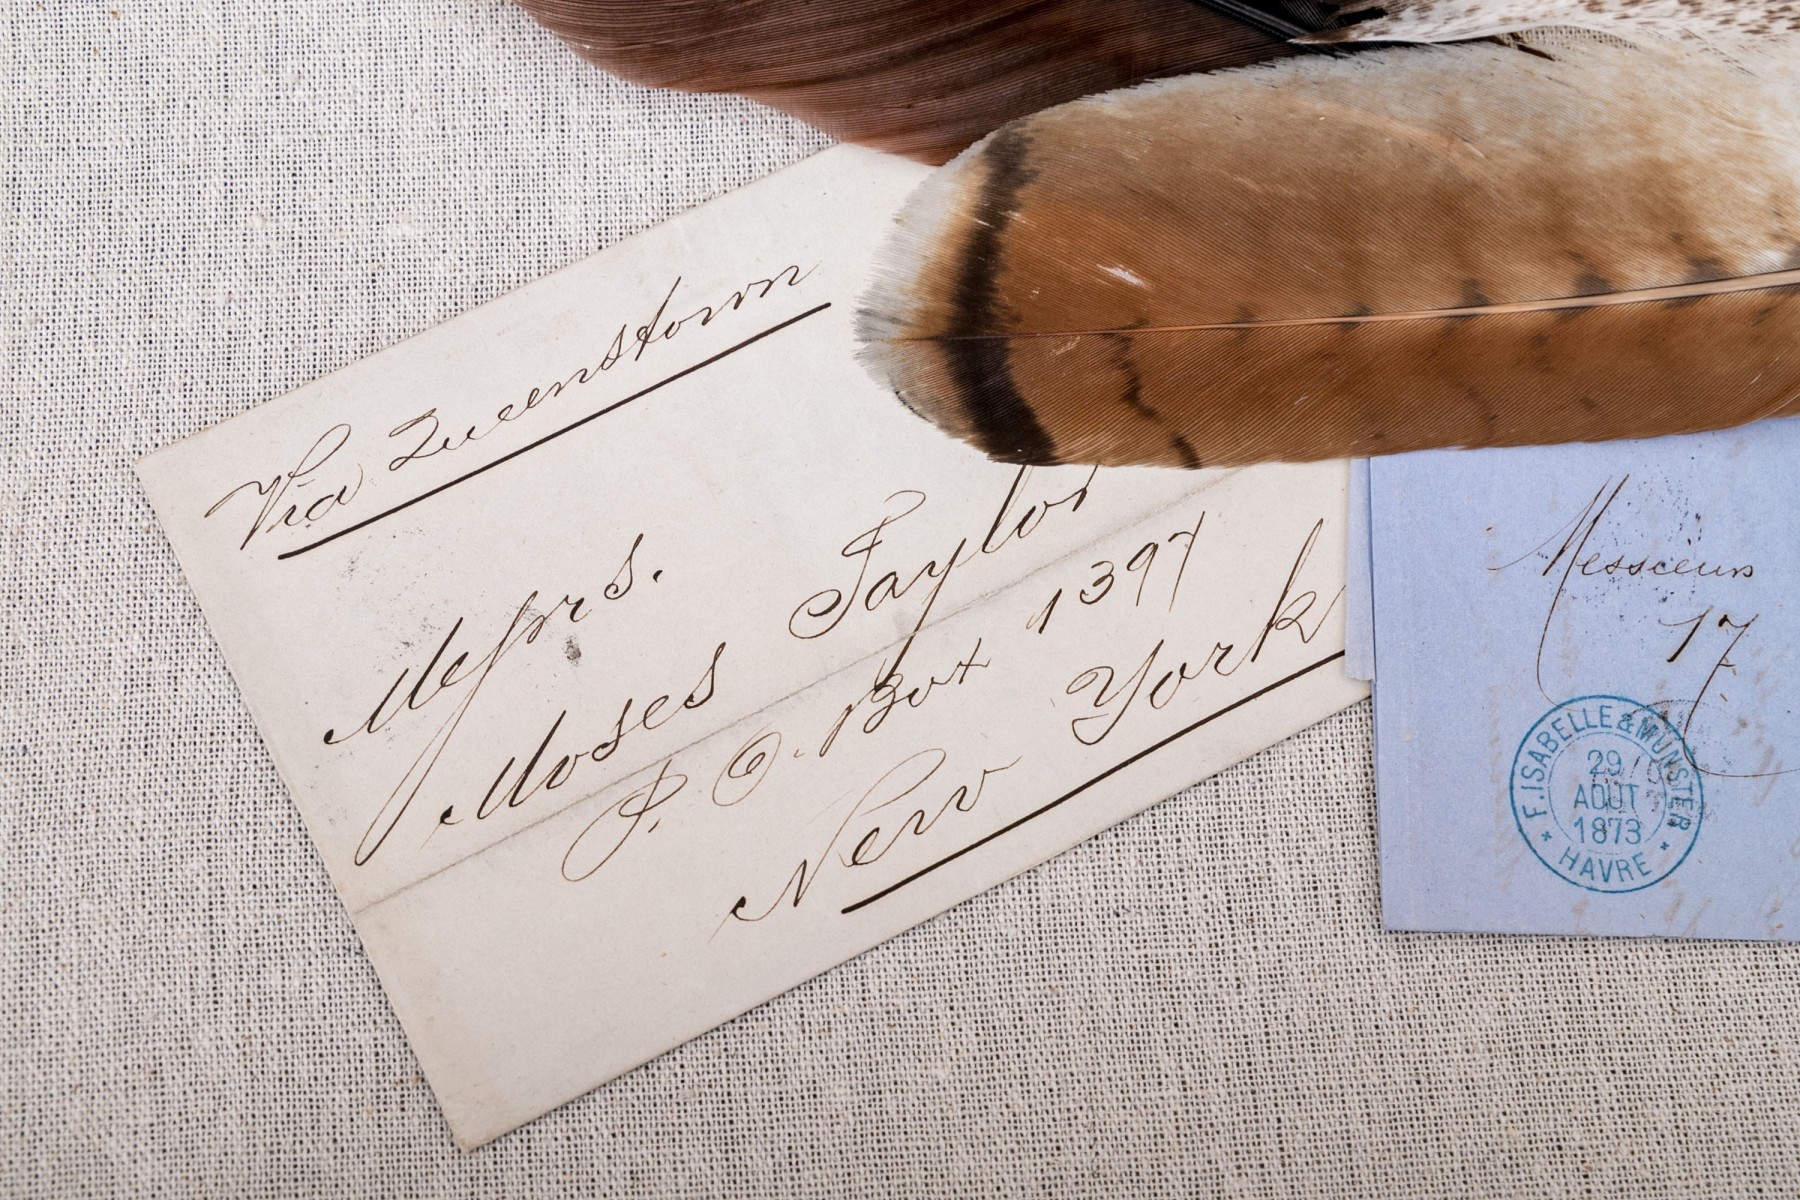 Via Queenstown
Messrs.
Moses Taylor
P. O. Box 1397
New York
Messieurs
17
F. ISABELLE & MUNSTER
29
AOUT
1873
* HAVRE *